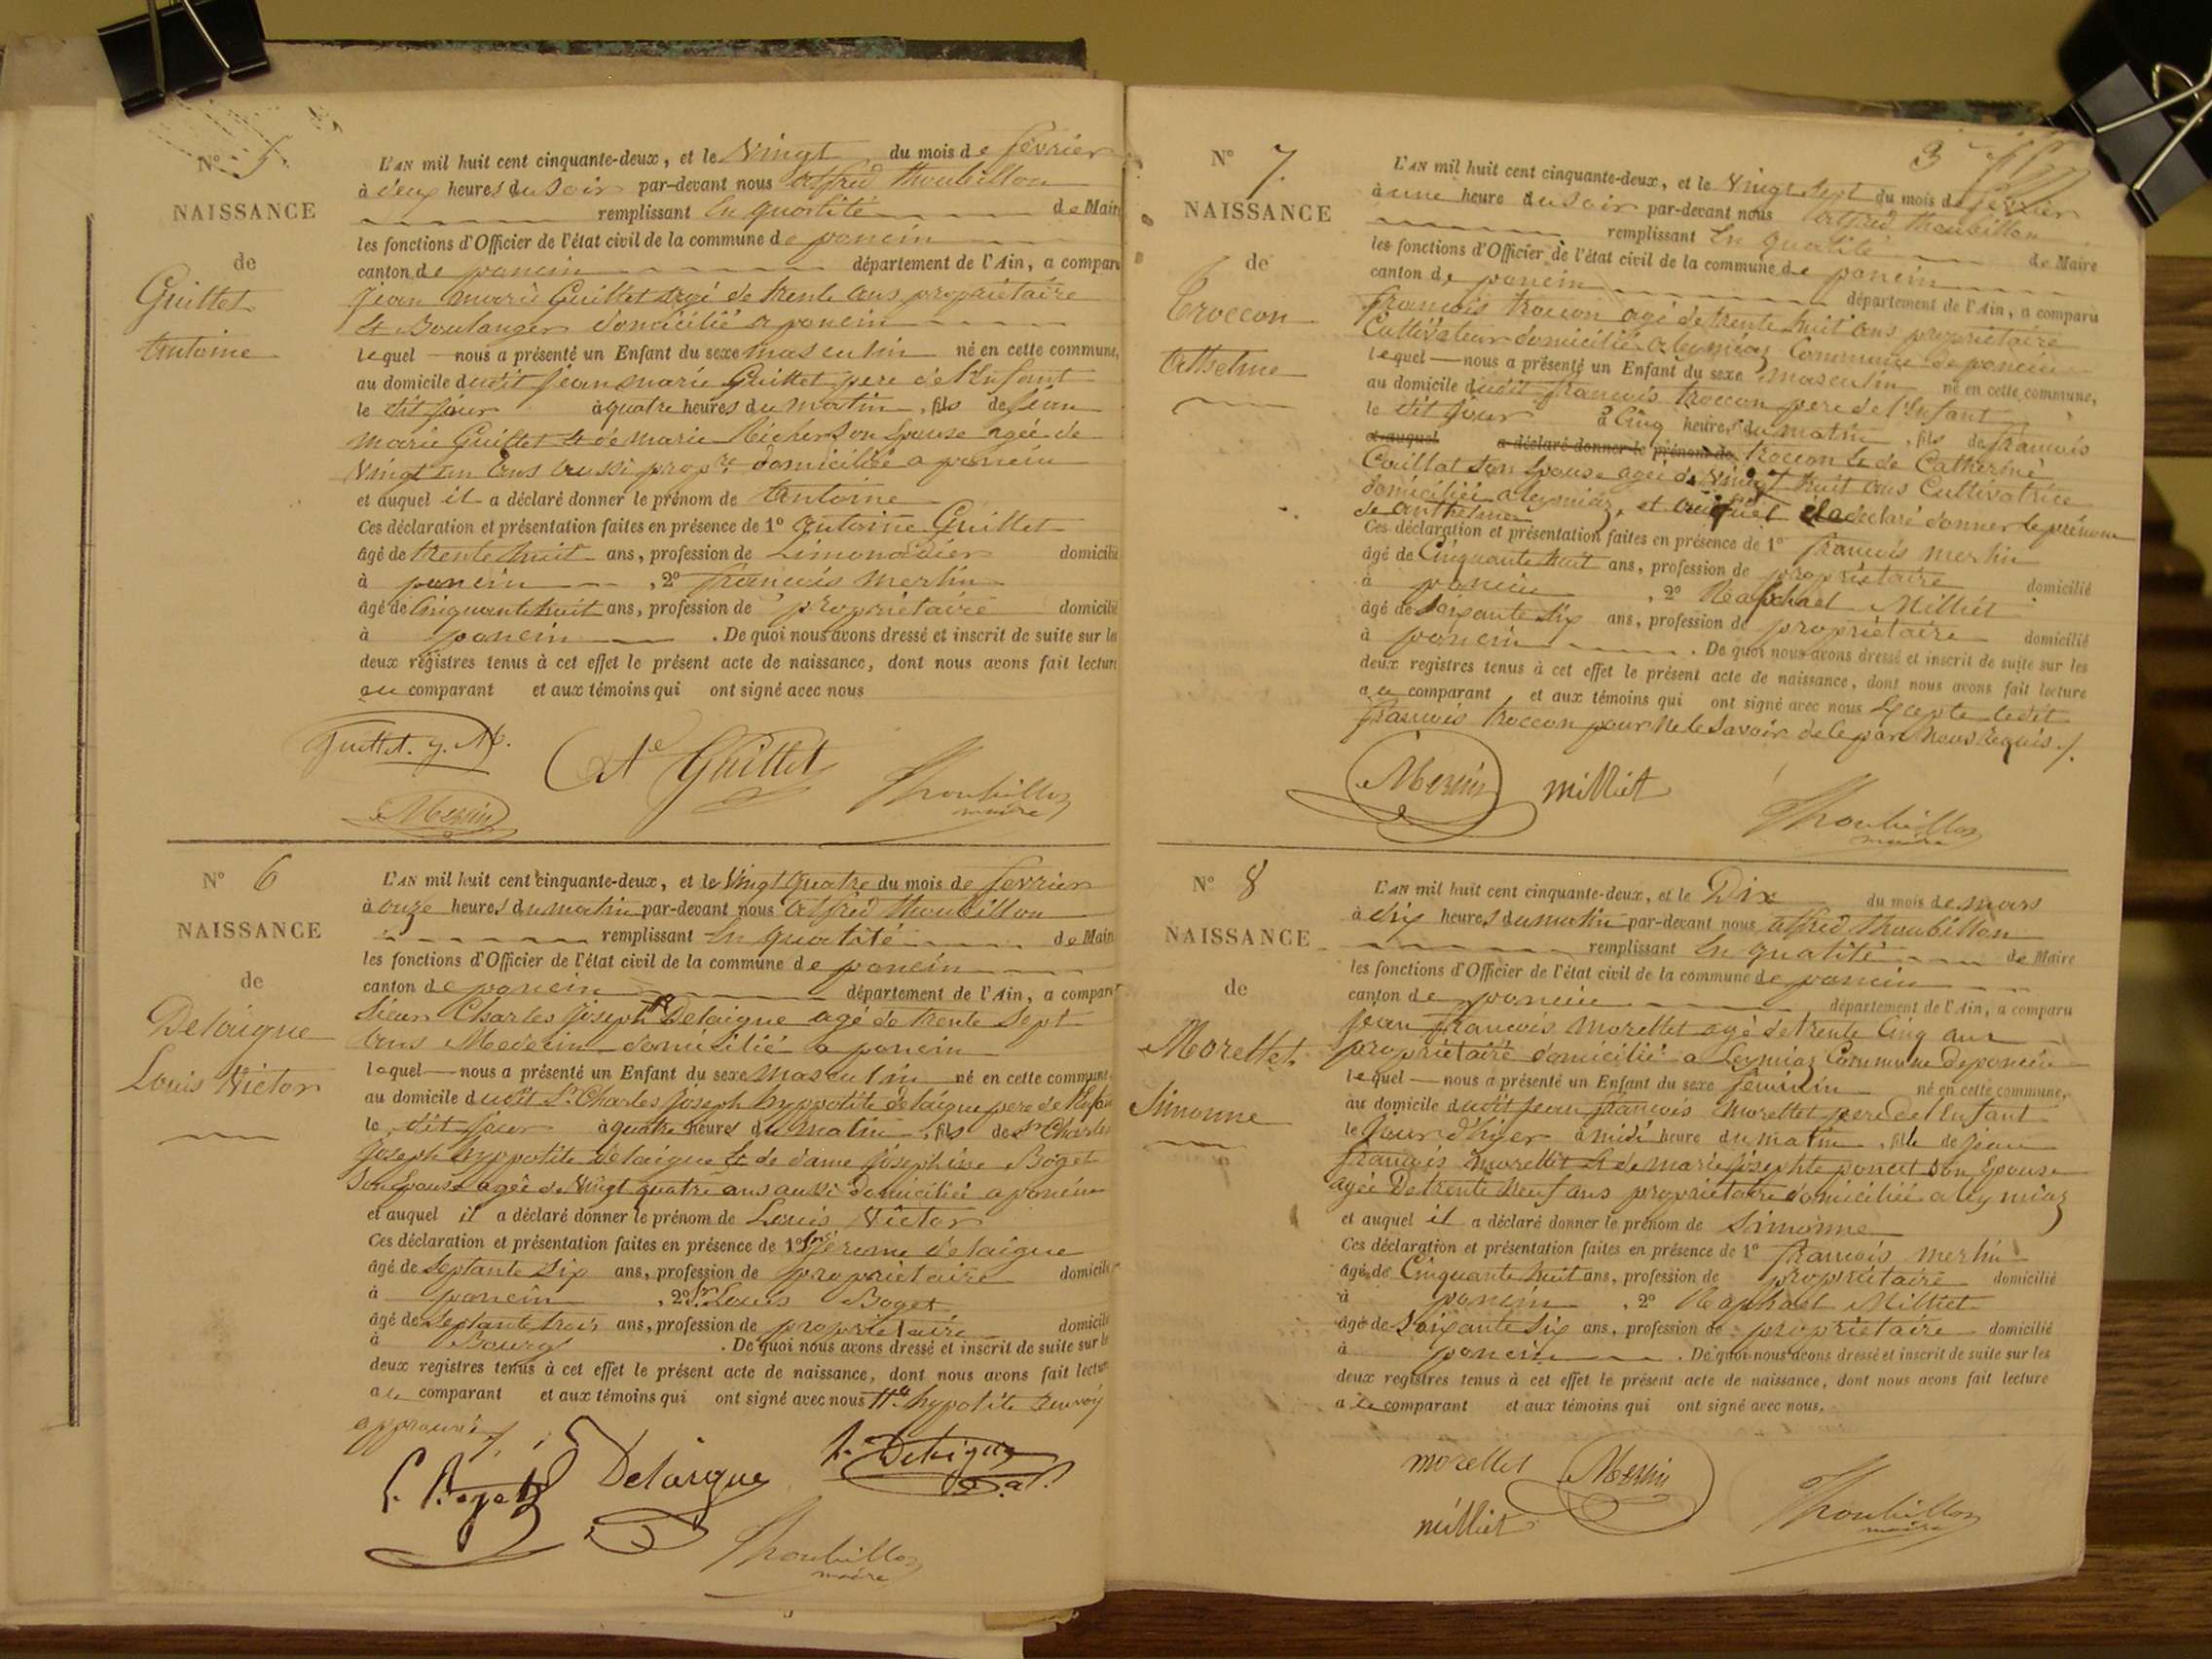 N° 5
NAISSANCE
de
Guillet
Antoine
L'AN mil huit cent cinquante-deux, et le Vingt du mois de février
à deux heures du Soir par-devant nous alfred thoubillon
remplissant En qualité de Maire
les fonctions d'Officier de l'état civil de la commune de poncin
canton de poncin département de l'Ain, a comparu
jean marie Guillet agé de trente ans propriétaire
et Boulanger domicilié a poncin
lequel nous a présenté un Enfant du sexe masculin né en cette commune,
au domicile dudit jean marie Guillet pere de l'Enfant
le dit jour à quatre heures du matin, fils de jean
marie Guillet et de marie Son Epouse agée de
Vingt un ans aussi propre domiciliée a poncin
et auquel il a déclaré donner le prénom de Antoine
Ces déclaration et présentation faites en présence de 1° antoine Guillet
âgé de trente huit ans, profession de Limonadier domicilié
à poncin, 2° francois merlin
âgé de Cinquante huit ans, profession de propriétaire domicilié
à poncin. De quoi nous avons dressé et inscrit de suite sur les
deux régistres tenus à cet effet le présent acte de naissance, dont nous avons fait lecture
au comparant et aux témoins qui ont signé avec nous
Guillet. j. M.
Ae Guillet
Thoubillon
maire
Merlin
N° 6
NAISSANCE
de
Delaigue
Louis Victor
L'AN mil huit cent cinquante-deux, et le Vingt quatre du mois de fevrier
à onze heures du matin par-devant nous alfred thoubillon
remplissant En qualité de Maire
les fonctions d'Officier de l'état civil de la commune de poncin
canton de poncin département de l'Ain, a comparu
Sieur Charles joseph # Delaigue agé de trente Sept
ans Medecin domicilié a poncin
lequel nous a présenté un Enfant du sexe masculin né en cette commune
au domicile dudit Sr Charles joseph hyppolite delaigue pere de l'Enfan
le dit jour à quatre heures du matin, fils de Sr Charles
joseph hyppolite delaigue et de dame josephine Boget
Son Epouse agée de Vingt quatre ans aussi domiciliée a poncin
et auquel il a déclaré donner le prénom de Louis Victor
Ces déclaration et présentation faites en présence de 1° Sr jerome delaigue
âgé de Septante Six ans, profession de propriétaire domicilié
à poncin, 2° Sr Louis Boget
âgé de Septante trois ans, profession de propriétaire domicilié
à Bourg. De quoi nous avons dressé et inscrit de suite sur le
deux registres tenus à cet effet le présent acte de naissance, dont nous avons fait lecture
au comparant et aux témoins qui ont signé avec nous # hypolite Renvoy
approuvé
L. Boget
Delaigue
j. Delaigue
Thoubillon
maire
3
N° 7
NAISSANCE
de
Troccon
Athelme
L'AN mil huit cent cinquante-deux, et le Vingt Sept du mois de février
à une heure du Soir par-devant nous alfred thoubillon
remplissant En qualité de Maire
les fonctions d'Officier de l'état civil de la commune de poncin
canton de poncin département de l'Ain, a comparu
francois troccon agé de trente huit ans propriétaire
Cultivateur domicilié a leymiaz Commune de poncin
lequel nous a présenté un Enfant du sexe masculin né en cette commune,
au domicile dudit francois troccon pere de l'Enfant
le dit jour à Cinq heures du matin, fils de francois
et auquel a déclaré donner le prénom de troccon et de Catherine
Caillat Son Epouse agée de Vingt huit ans Cultivatrice
domiciliée a leymiaz, et auquel il a declaré donner le prénom
de anthelme
Ces déclaration et présentation faites en présence de 1° francois merlin
âgé de Cinquante huit ans, profession de propriétaire domicilié
à poncin, 2° Raphael Milliet
âgé de Soixante Six ans, profession de propriétaire domicilié
à poncin. De quoi nous avons dressé et inscrit de suite sur les
deux registres tenus à cet effet le présent acte de naissance, dont nous avons fait lecture
au comparant et aux témoins qui ont signé avec nous Excepte ledit
francois troccon pour ne le Savoir de ce par nous requis./.
Merlin
milliet
Thoubillon
maire
N° 8
NAISSANCE
de
Morellet
Simonne
L'AN mil huit cent cinquante-deux, et le Dix du mois de mars
à dix heures du matin par-devant nous alfred thoubillon
remplissant En qualité de Maire
les fonctions d'Officier de l'état civil de la commune de poncin
canton de poncin département de l'Ain, a comparu
jean francois morellet agé de trente Cinq ans
propriétaire domicilié a Leymiaz Commune de poncin
lequel nous a présenté un Enfant du sexe feminin né en cette commune,
au domicile dudit jean francois morellet pere de l'Enfant
le jour d'hyer à midi heure du matin, fille de jean
francois morellet et de marie josephte poncet Son Epouse
agée De trente neuf ans propriétaire domiciliée a leymiaz
et auquel il a déclaré donner le prénom de Simonne
Ces déclaration et présentation faites en présence de 1° francois merlin
âgé de Cinquante huit ans, profession de propriétaire domicilié
à poncin, 2° Raphael Milliet
âgé de Soixante Six ans, profession de propriétaire domicilié
à poncin. De quoi nous avons dressé et inscrit de suite sur les
deux registres tenus à cet effet le présent acte de naissance, dont nous avons fait lecture
au comparant et aux témoins qui ont signé avec nous.
morellet
Merlin
milliet
Thoubillon
maire